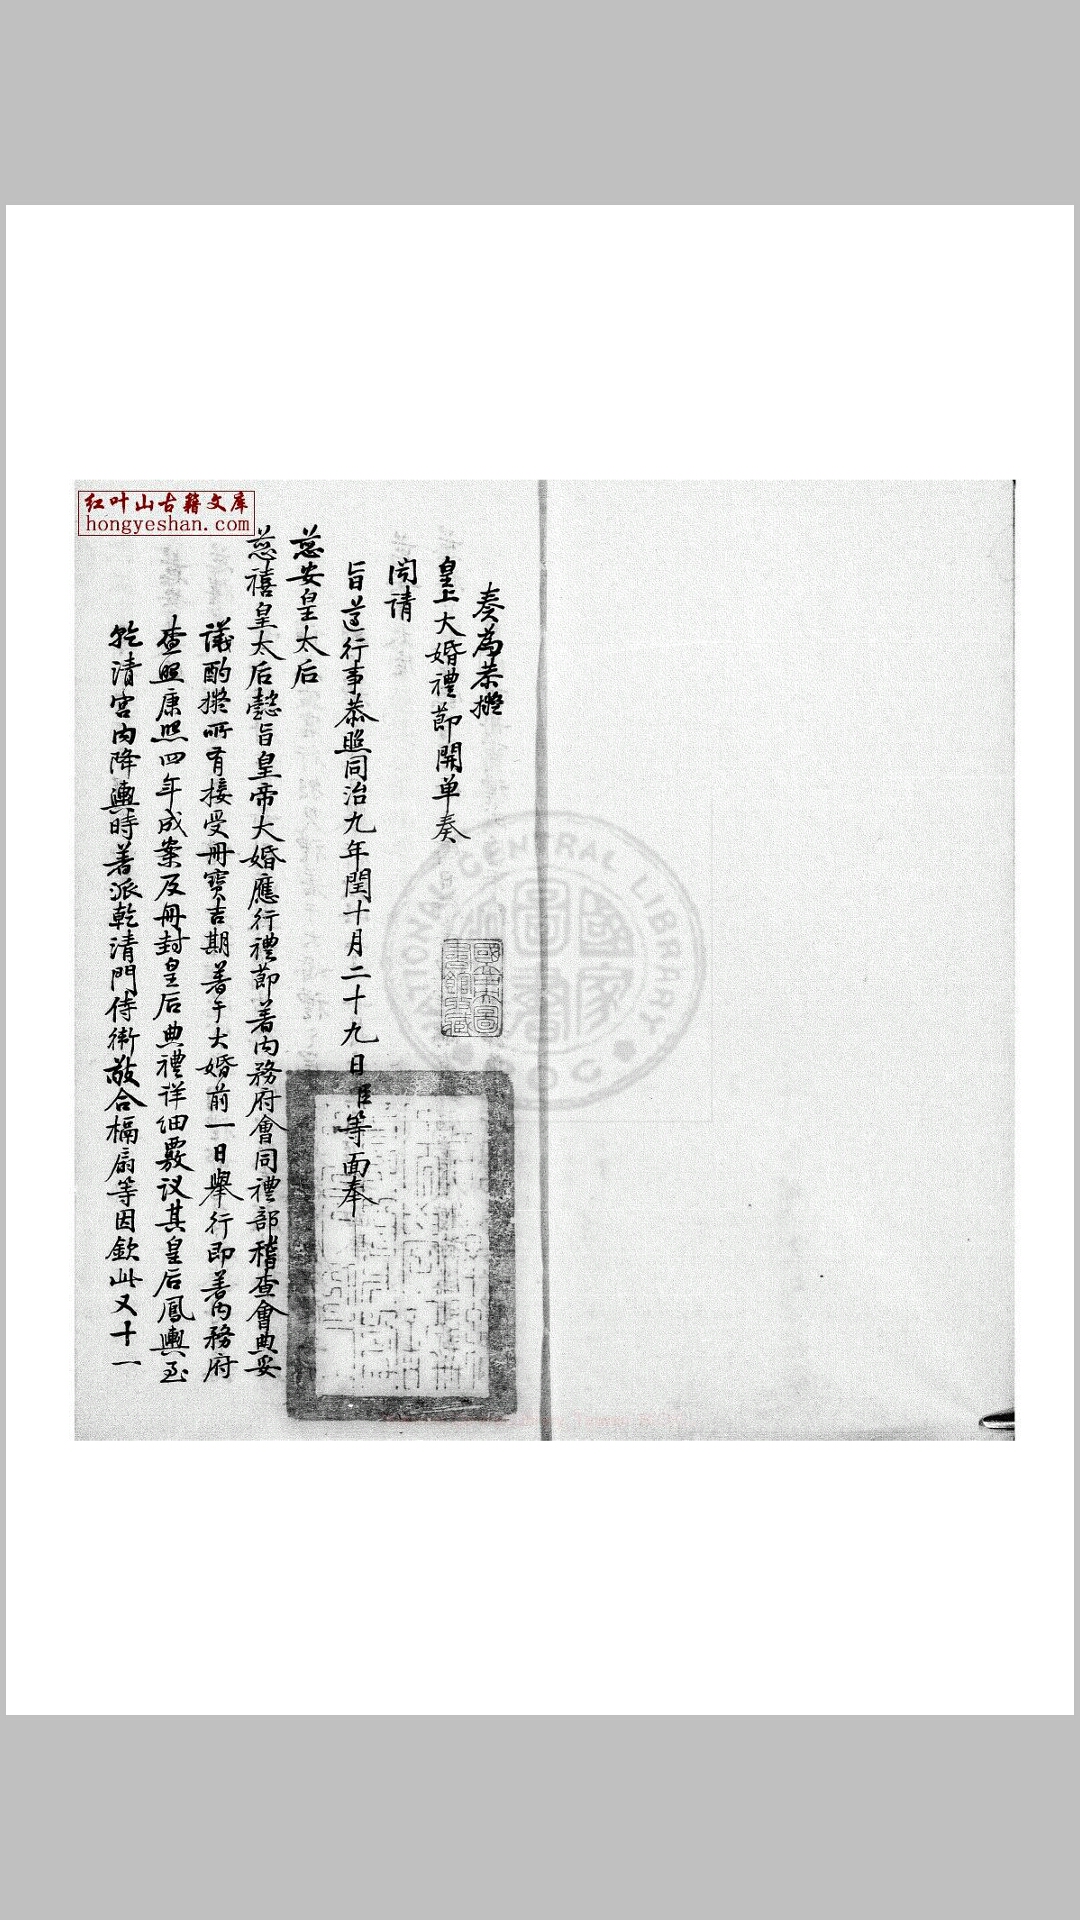 红叶山古籍文库
hongyeshan.com
奏為恭擬
皇上大婚禮節開單奏
聞請
旨遵行事恭照同治九年閏十月二十九日臣等面奉
慈安皇太后
慈禧皇太后懿旨皇帝大婚應行禮節著內務府會同禮部稽查會典妥
議酌擬所有接受冊寶吉期著于大婚前一日舉行即著內務府
查照康熙四年成案及冊封皇后典禮詳細覈议其皇后鳳輿至
乾清宮內降輿時著派乾清門侍衛敲合槅扇等因欽此又十一
國立中央圖書館藏
NATIONAL CENTRAL LIBRARY
國家圖書